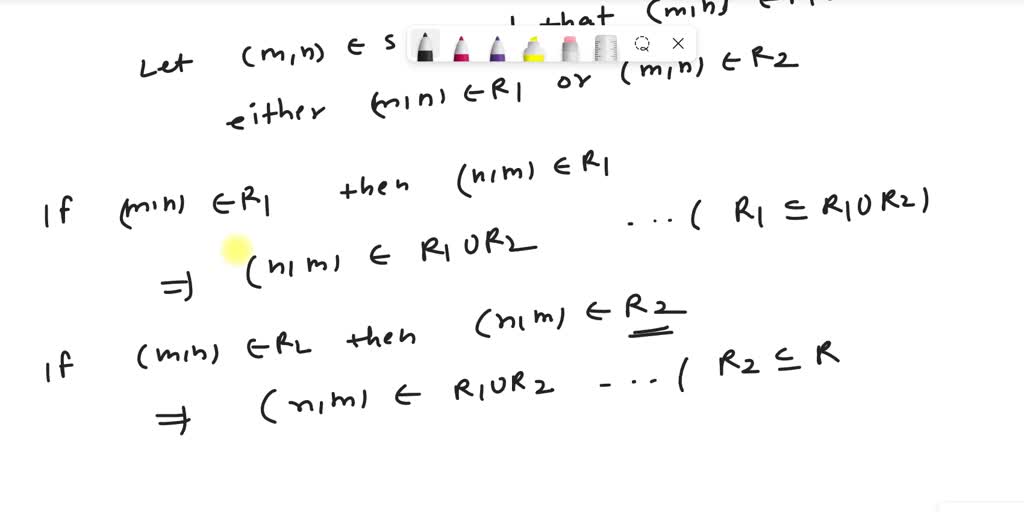 Let (m,n) ∈ S that (m,n) ∈
either (m,n) ∈ R1 or (m,n) ∈ R2
If (m,n) ∈ R1 then (n,m) ∈ R1
⇒ (n,m) ∈ R1 ∪ R2 ... ( R1 ⊆ R1 ∪ R2 )
If (m,n) ∈ R2 then (n,m) ∈ R2
⇒ (n,m) ∈ R1 ∪ R2 ... ( R2 ⊆ R